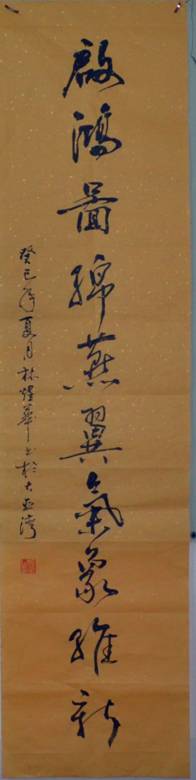 啟鴻圖綿燕翼氣象維新
癸巳年夏月林煌華書於大亞灣